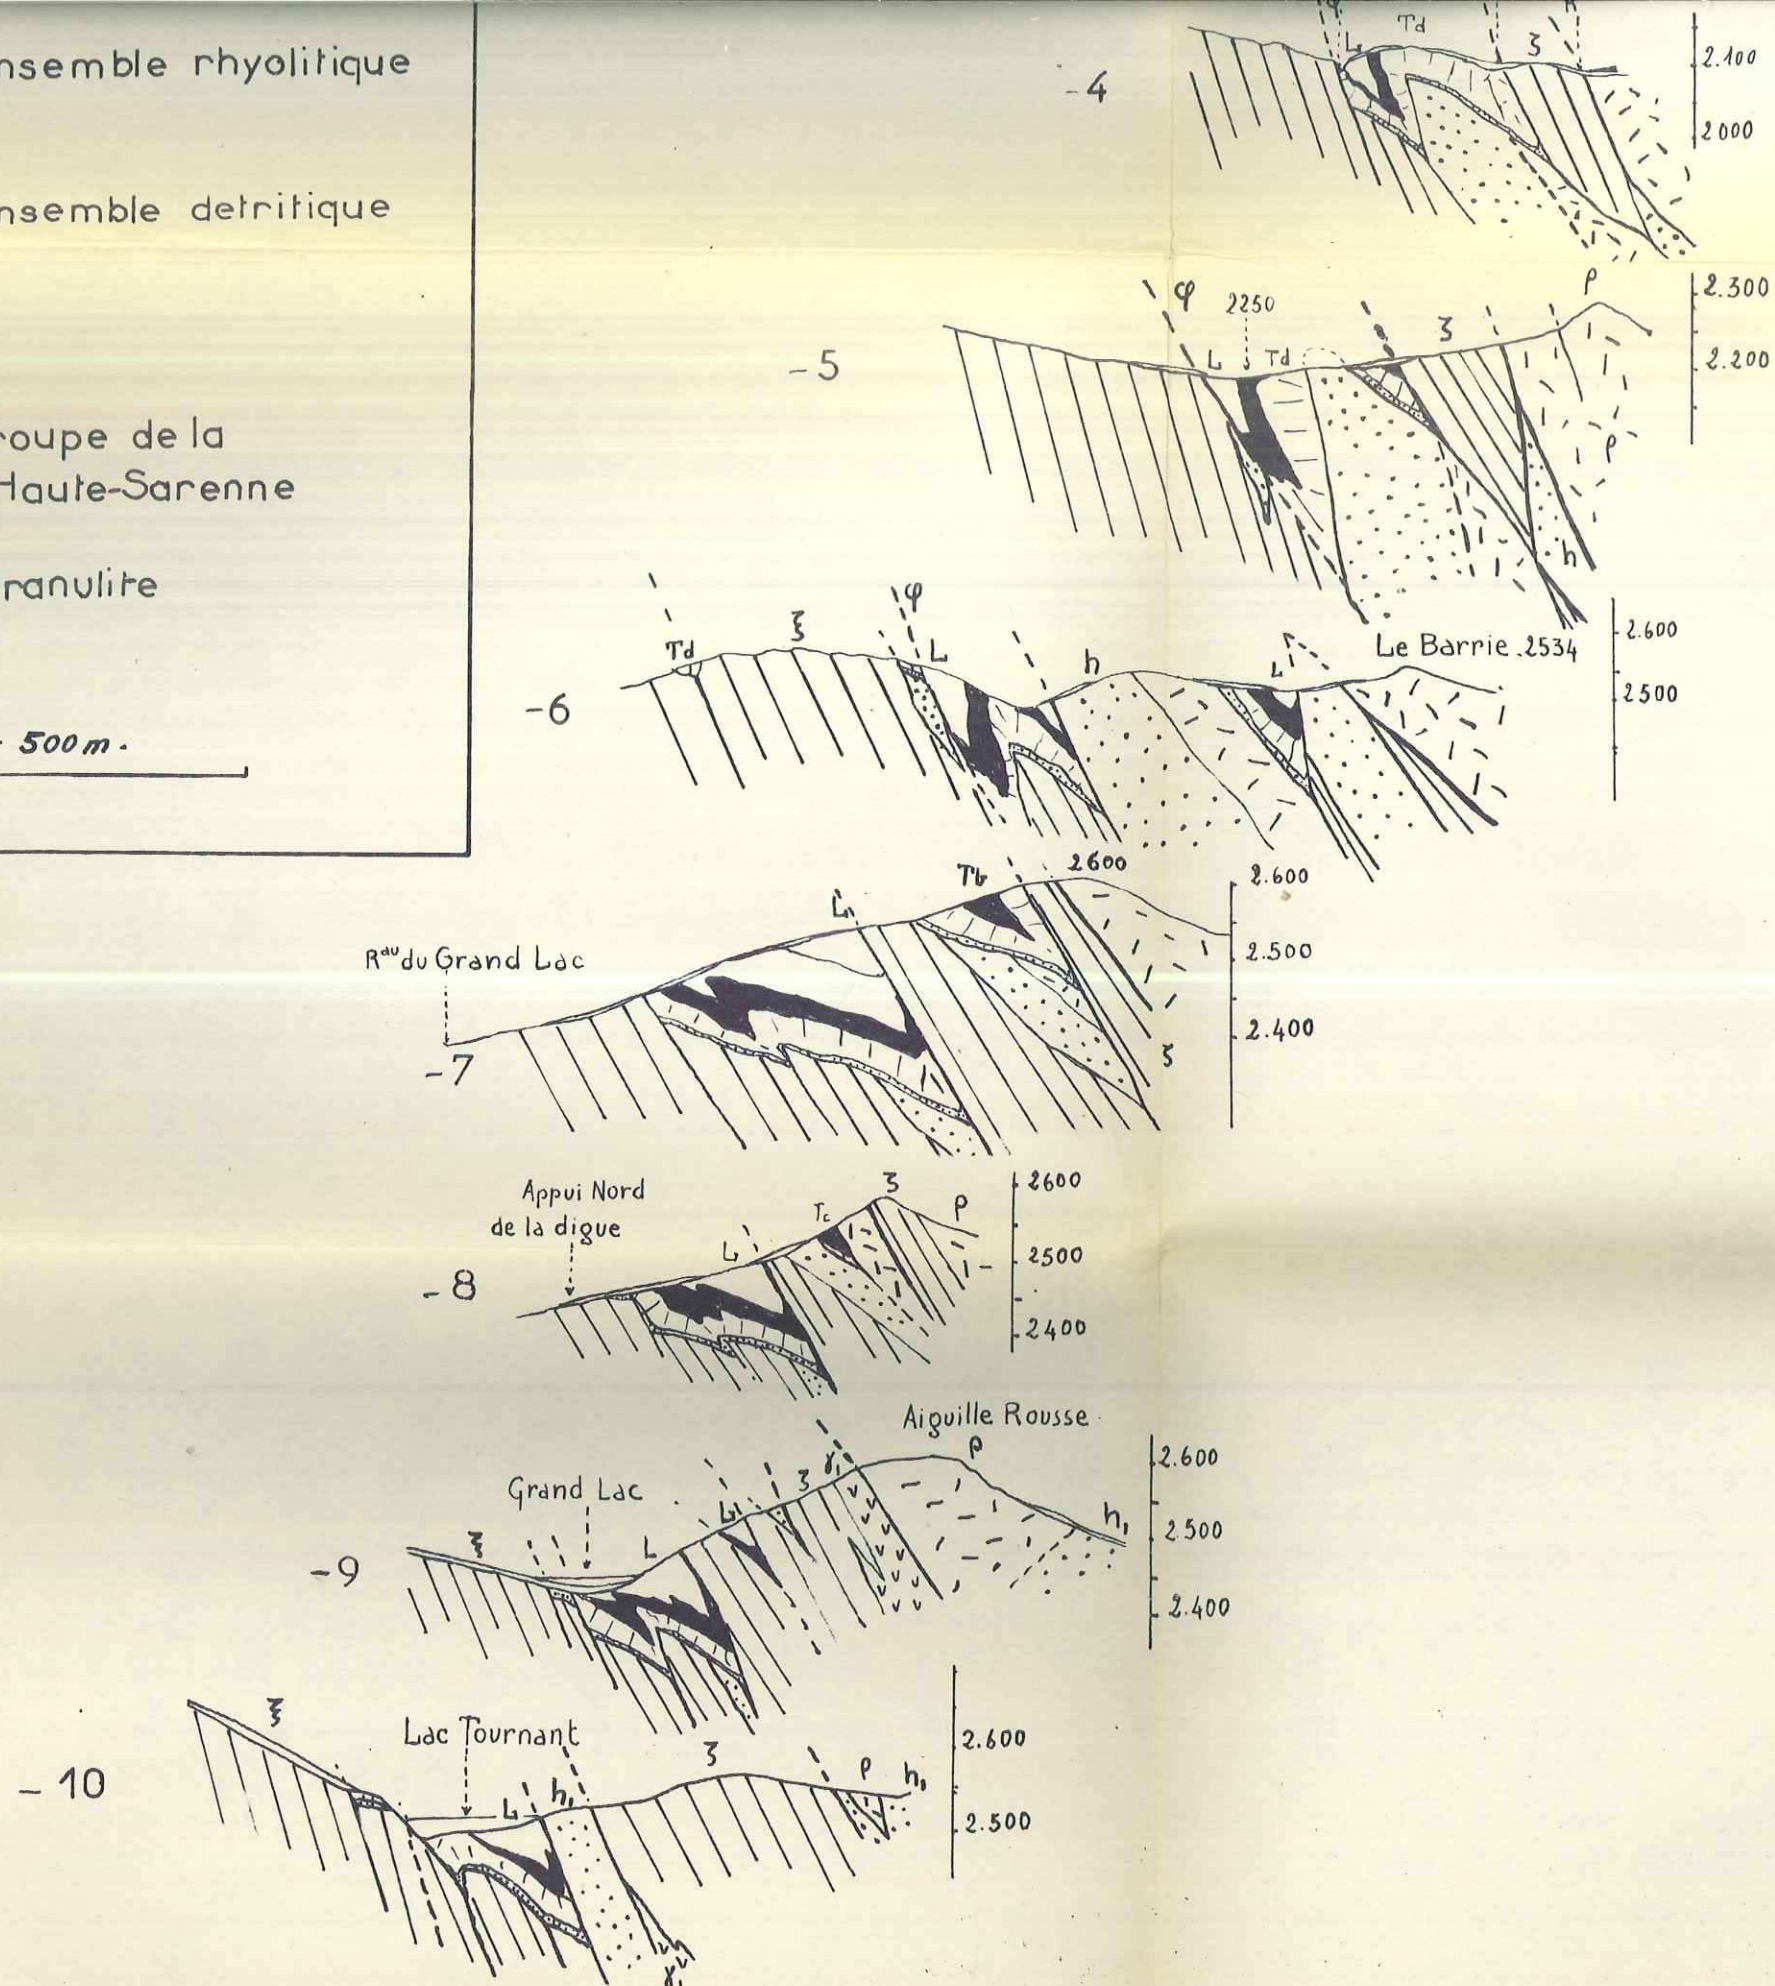 nsemble rhyolitique
nsemble detritique
roupe de la
Haute-Sarenne
ranulite
500m.
-4
φ
L
Td
ξ
2.100
2000
-5
φ
2250
L
Td
ξ
ρ
ρ
h
2.300
2.200
-6
Td
ξ
φ
L
h
L
Le Barrie.2534
2.600
2500
-7
Rau du Grand Lac
L
Tb
2600
ξ
2.600
2.500
2.400
-8
Appui Nord
de la digue
L
Tc
ξ
ρ
2600
2500
2400
-9
Aiguille Rousse
Grand Lac
ξ
L
L
ξ
γ1
ρ
h1
2.600
2500
2.400
-10
ξ
Lac Tournant
L
h1
ξ
ρ
h1
γ1
2.600
2.500